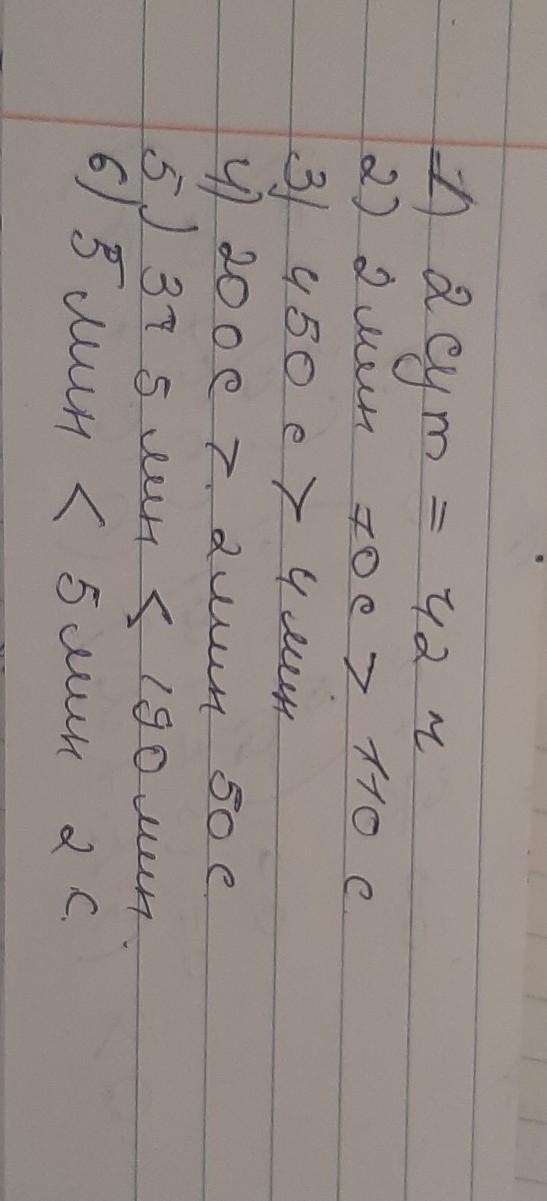 1) 2 сут = 42 ч
2) 2 мин 70 с > 110 с
3) 450 с > 4 мин
4) 200 с > 2 мин 50 с
5) 3 ч 5 мин < 190 мин.
6) 5 мин < 5 мин 2 с.